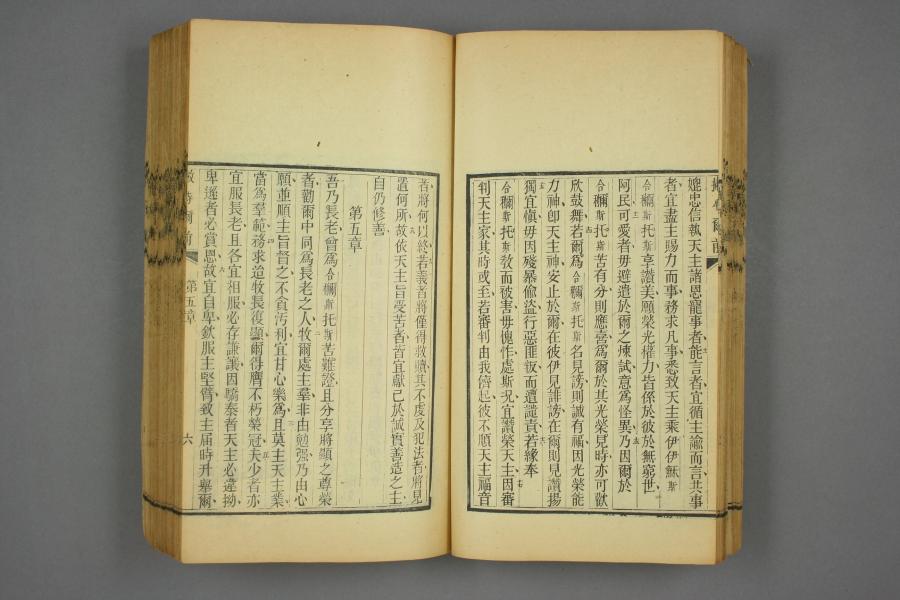 媲忠信執天主諸恩寵事者能言者宜循主諭而言共事
者宜盡主賜力而事務求凡事悉致天主乘伊伊穌斯
合穪斯托斯享讚美願榮光權力皆係於彼於無窮世
阿民可愛者毋避遣於爾之煉試意為怪異乃因爾於
合穪斯托斯苦有分則應喜為爾於其光榮見時亦可歡
欣鼓舞若爾為合穪斯托斯名見謗則誠有福因光榮能
力神卽天主神安止於爾在彼伊見誹謗在爾則見讚揚
獨宜愼毋因殘暴偸盜行惡匪扳而遭譴責若緣奉
合穪斯托斯敎而被害毋愧怍處斯况宜讚榮天主因審
判天主家其時或至若審判由我儕起彼不順天主福音
者將何以終若義者將僅得救贖其不虔及犯法者將見
置何所故依天主旨受苦者皆宜獻己於誠實善造之主
自仍修善
第五章
吾乃長老曾為合穪斯托斯苦難證且分享將顯之尊榮
者勸爾中同為長老之人牧爾處主羣非由勉强乃由心
願並順主旨督之不貪汚利宜甘心樂為且莫主天主業
當為羣範務求迨牧長復顯爾得膺不朽榮冠夫少者亦
宜服長老且各宜相服必存謙讓因驕泰者天主必違拗
卑遜者必賞恩故宜自卑欽服主堅臂致主屆時升舉爾
第五章
六